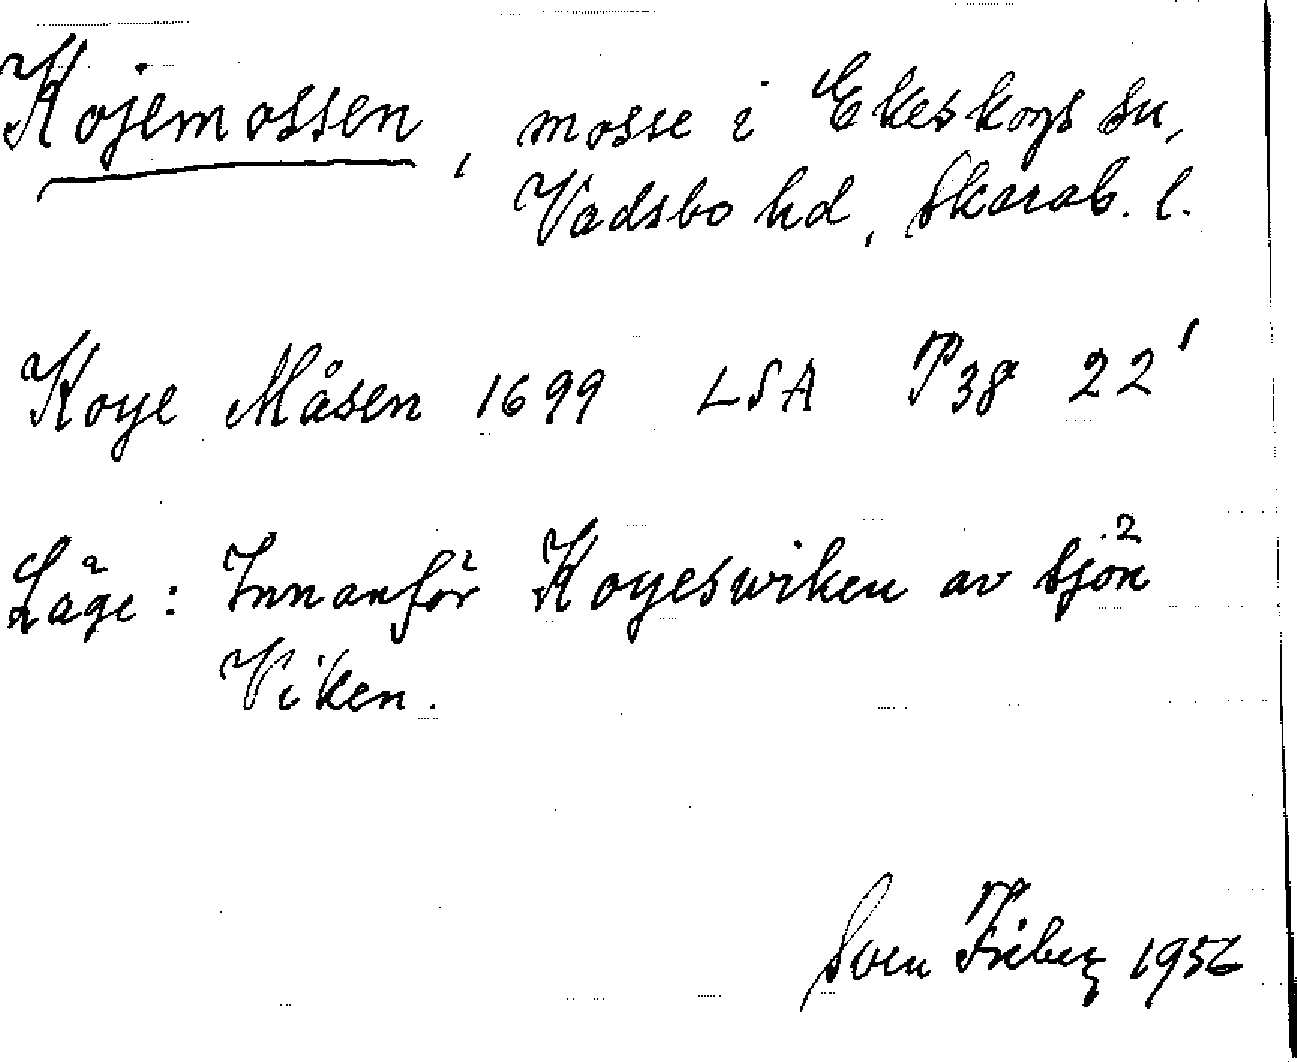 Kojemossen, mosse i Ekeskogs sn,
Vadsbo hd, Skarab. l.
Koye Måsen 1699 LSA P38 22¹
Läge: Innanför Koyeswiken av sjön
Viken.
Sven Friberg 1956